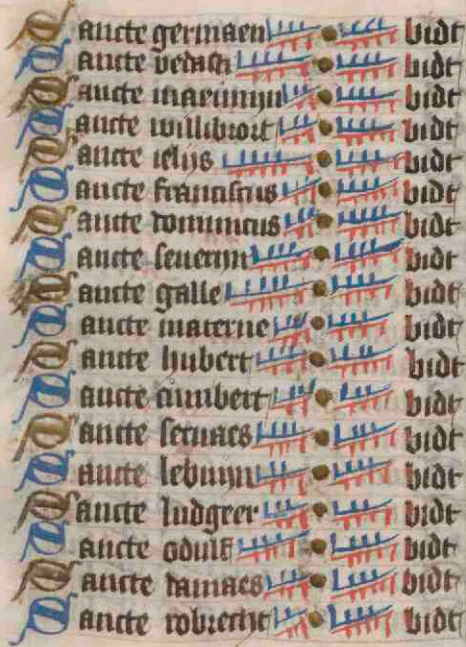 Sancte germaen bidt
Sancte vedast bidt
Sancte maximijn bidt
Sancte willibrort bidt
Sancte ielijs bidt
Sancte franciscus bidt
Sancte dominicus bidt
Sancte seuerijn bidt
Sancte galle bidt
Sancte materne bidt
Sancte hubert bidt
Sancte cunibert bidt
Sancte seruaes bidt
Sancte lebuijn bidt
Sancte ludgeer bidt
Sancte odulf bidt
Sancte damaes bidt
Sancte robrecht bidt